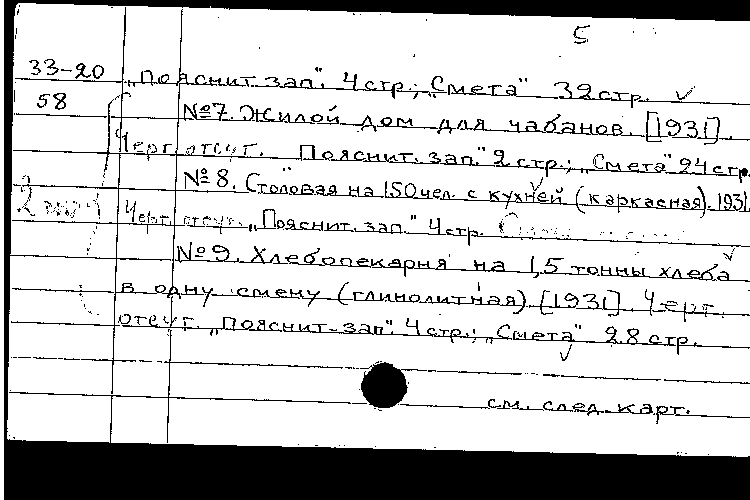 5
33-20 „Пояснит. зап". 4 стр.; „Смета" 32 стр.
58 №7. Жилой дом для чабанов. [1931].
Черт. отсут. „Пояснит. зап." 2 стр.; „Смета" 24 стр.
№8. Столовая на 150 чел. с кухней (каркасная). 1931.
2
Черт. отсут. „Пояснит. зап." 4 стр.
№9. Хлебопекарня на 1,5 тонны хлеба
в одну смену (глинолитная) [1931]. Черт.
отсут. „Пояснит. зап". 4 стр.; „Смета" 28 стр.
см. след. карт.